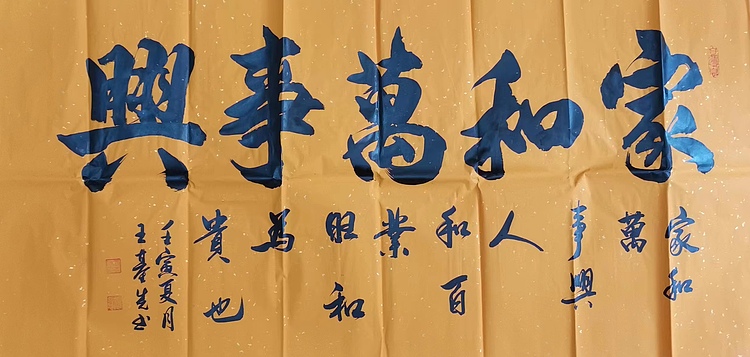 家和萬事興
家和
萬
事興
人
和百
業
旺和
為
貴也
壬寅夏月
王基先书